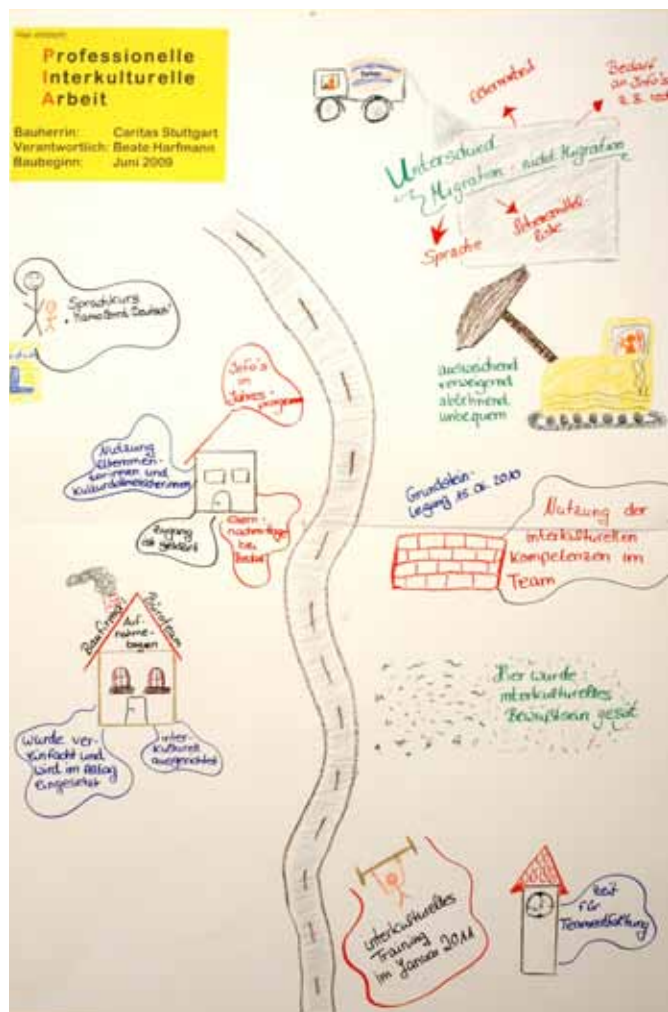 Hier entsteht:
Professionelle
Interkulturelle
Arbeit
Bauherrin: Caritas Stuttgart
Verantwortlich: Beate Harfmann
Baubeginn: Juni 2009
Elternarbeit
Bedarf
an Info's
Unterschied
Migration - nicht Migration
Sprache
Sprachkurs
"Mama lernt Deutsch"
ausweichend
verweigernd
ablehnend
unbequem
Info's im
Jahres-
programm
Nutzung
Elternmen-
tor-innen und
Kulturdolmetscherinnen
Zugang
ist geklärt
Eltern-
nachmittage
bei
Bedarf
Grundstein-
legung 15.06.2010
Nutzung der
interkulturellen
Kompetenzen im
Team
Baufirma: Büroteam
Auf-
nahme-
bogen
wurde ver-
einfacht und
wird im Alltag
eingesetzt
inter-
kulturell
ausgerichtet
Hier wurde
interkulturelles
Bewußtsein gesät
interkulturelles
Training
im Januar 2011
Zeit
für
Teamentfaltung